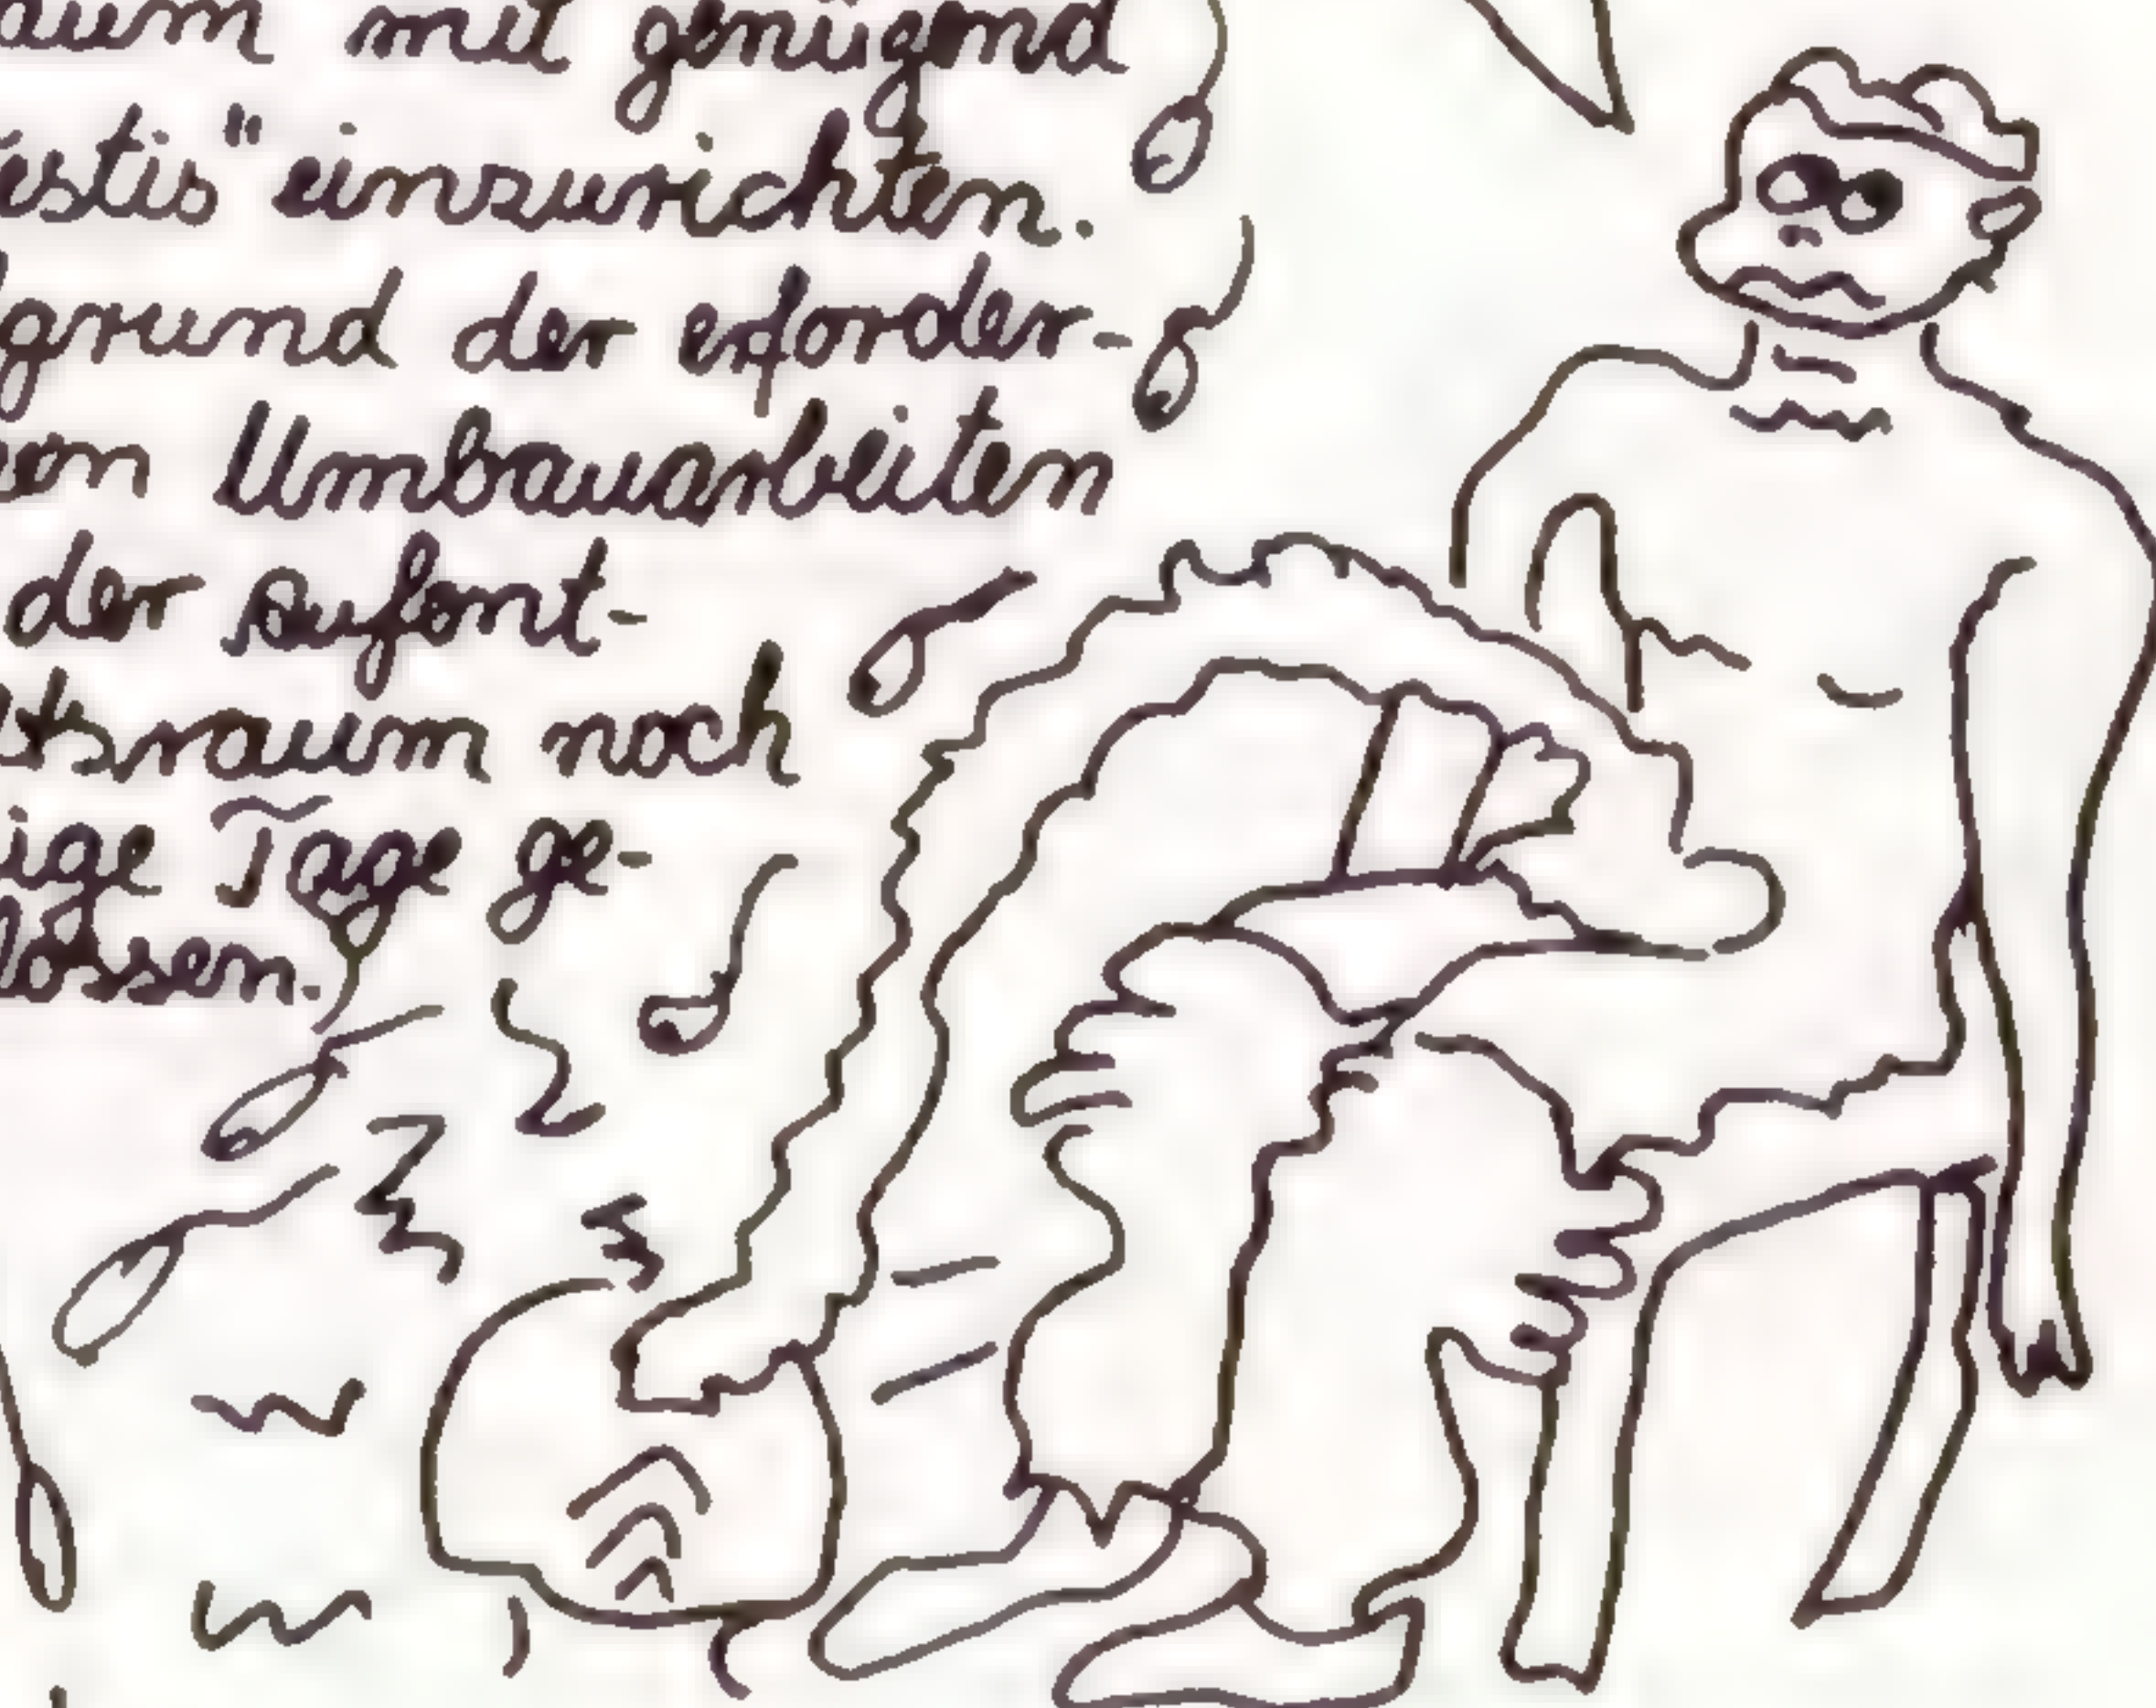 aum mit genügend
estis" einzurichten.
grund der erforder-
en Umbauarbeiten
der Aufent-
tsraum noch
ige Tage ge-
lossen.